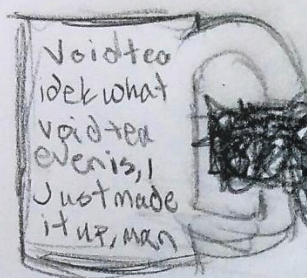 Voidtea
idek what
void tea
even is, I
Just made
it up, man